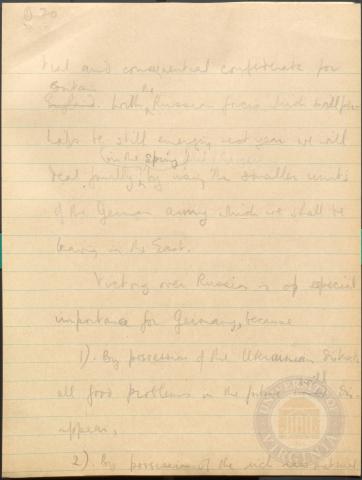 B 20
tial and consequential confederate for
Britain
England. With the Russian forces which will per-
haps be still emerging next year we will
(in the spring)
deal jointly by using the smaller units
of the German army which we shall be
leaving in the East.
Victory over Russia is of especial
importance for Germany, because
1). By possession of the Ukrainian districts
all food problems in the future will dis-
appear,
2). By possession of the rich
UNIVERSITY OF VIRGINIA